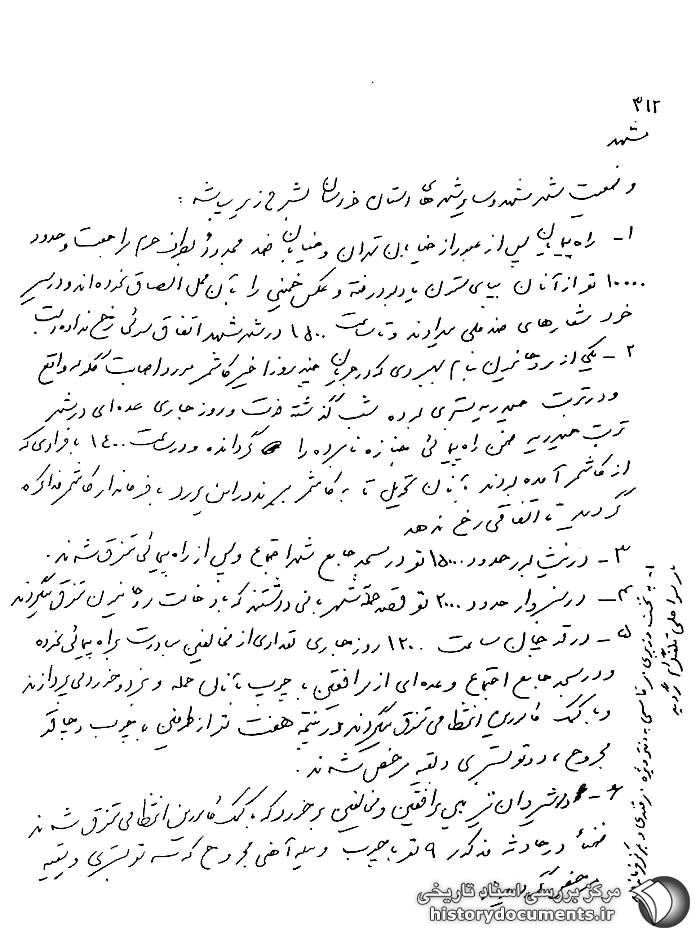 ۳۱۲
مشهد
وضعیت شهر مشهد و سایر شهرهای استان خراسان بشرح زیر میباشد :
۱- راه پیمایان پس از عبور از خیابان تهران و خیابان ضد بطرف حرم مراجعت و حدود
۱۰۰۰۰ نفر از آنان بپای ستون یادبود رفته و عکس خمینی را بآن محل الصاق نموده اند و در مسیر
خود شعارهای ضد ملی میدادند و تا ساعت ۱۵۰۰ در شهر مشهد اتفاق سوئی رخ نداده است
۲- یکی از روحانیون بنام که در جریان چند روز اخیر کاشمر مورد اصابت گلوله واقع
و در تربت حیدریه بستری بوده شب گذشته فوت و روز جاری عده ای در شهر
تربت حیدریه ضمن راه پیمائی جنازه نامبرده را گردانده و در ساعت ۱۴۰۰ با افرادی که
از کاشمر آمده بودند بآنان تحویل تا به کاشمر ببرند در این مورد با فرماندار کاشمر مذاکره
گردید تا اتفاقی رخ ندهد
۳- در نیشابور حدود ۱۵۰۰۰ نفر در مسجد جامع شهر اجتماع و پس از راه پیمائی متفرق شدند .
۴- در سبزوار حدود ۲۰۰۰ نفر قصد داشتند که با دخالت روحانیون متفرق میگردند
۵- در قوچان ساعت ۱۲۰۰ روز جاری تعدادی از مخالفین مبادرت براه پیمائی نموده
و در مسجد جامع اجتماع و عده ای از موافقین با چوب بآنان حمله و بزد و خورد می پردازند
و با کمک مامورین انتظامی متفرق میگردند در نتیجه هفت نفر از طرفین با چوب و چاقو
مجروح ، دو نفر بستری و بقیه مرخص شدند .
۶- در شیروان نیز بین موافقین و مخالفین برخورد که با کمک مامورین انتظامی متفرق شدند
ضمناً در حادثه مذکور ۹ نفر با چوب و میله آهنی مجروح که سه نفر بستری و بقیه
مرخص گردیدند
مرکز بررسی اسناد تاریخی
historydocuments.ir